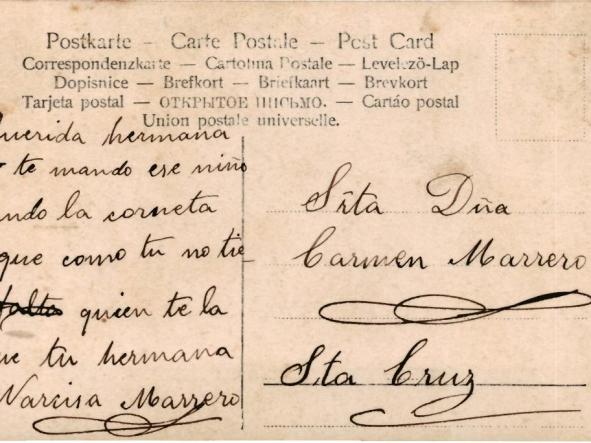 Postkarte – Carte Postale – Post Card
Correspondenzkarte – Cartolina Postale – Levelezö-Lap
Dopisnice – Brefkort – Briefkaart – Brevkort
Tarjeta postal – ОТКРЫТОЕ ПИСЬМО. – Cartáo postal
Union postale universelle.
uerida hermana
te mando ese niño
ndo la corneta
que como tu no tie
falta quien te la
ue tu hermana
Narcisa Marrero
Sñta Dña
Carmen Marrero
Sta Cruz